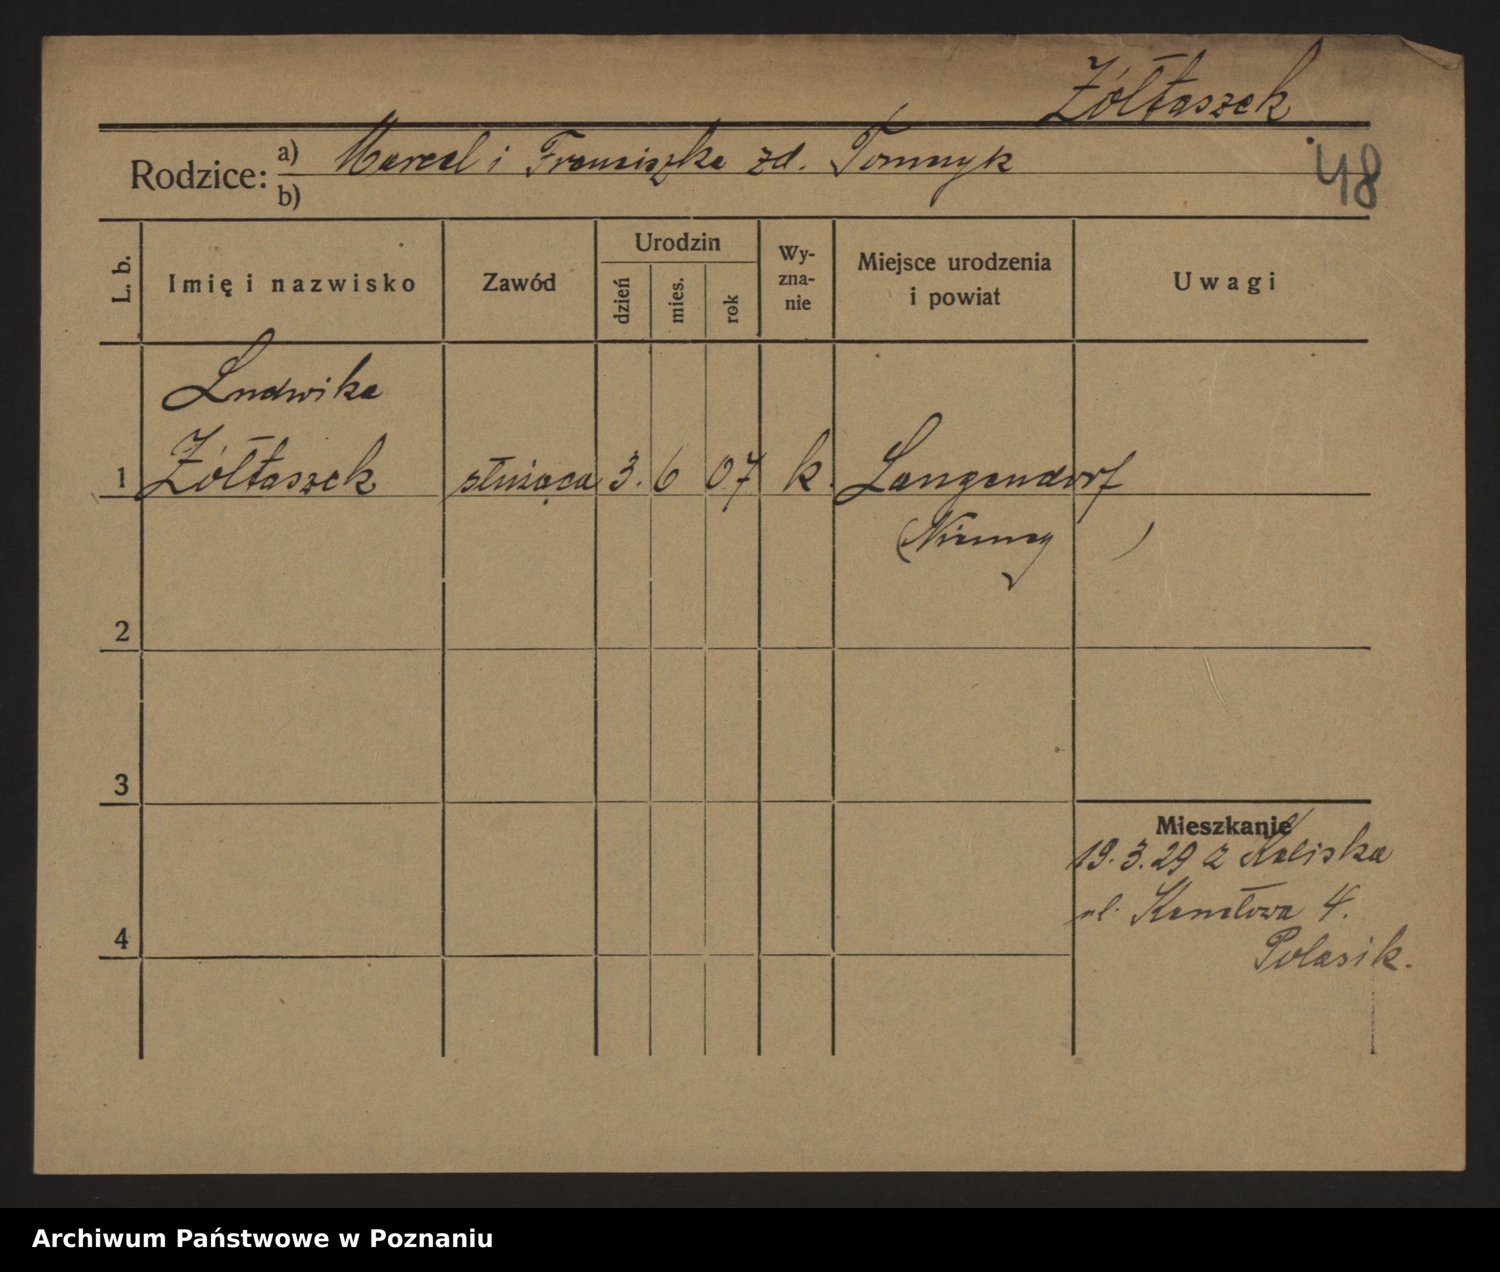 Żółtaszek
Rodzice: a) Marcel i Franciszka zd. Tomczyk
b)
48
L. b.
Imię i nazwisko
Zawód
Urodzin
dzień
mies.
rok
Wy-
zna-
nie
Miejsce urodzenia
i powiat
Uwagi
Ludwika
1 Żółtaszek służąca 3. 6 07 k. Langendorf
(Niemcy )
2
3
Mieszkanie
19.3.29 z Kaliska
ul. Kanałowa 4.
4
Polasik.
Archiwum Państwowe w Poznaniu